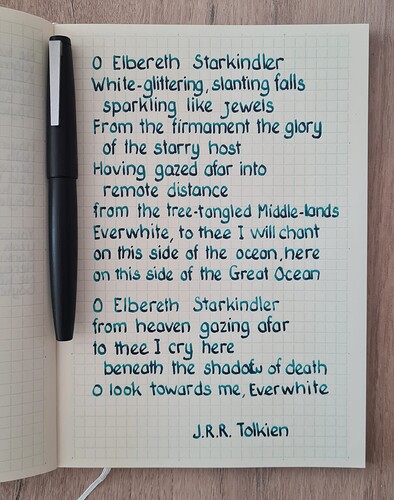 O Elbereth Starkindler
White-glittering, slanting falls
sparkling like jewels
From the firmament the glory
of the starry host
Having gazed afar into
remote distance
from the tree-tangled Middle-lands
Everwhite, to thee I will chant
on this side of the ocean, here
on this side of the Great Ocean
O Elbereth Starkindler
from heaven gazing afar
to thee I cry here
beneath the shadow of death
O look towards me, Everwhite
J.R.R. Tolkien